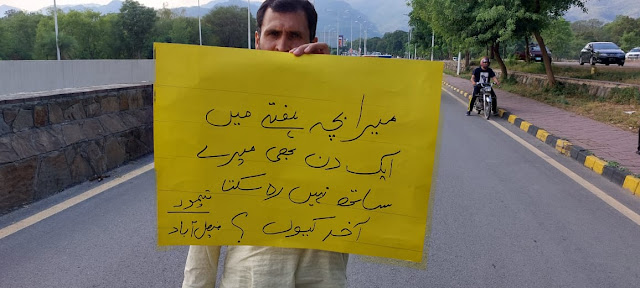 میرا بچہ ہفتے میں
ایک دن بھی میرے
ساتھ نہیں رہ سکتا
آخر کیوں ؟
تیمور